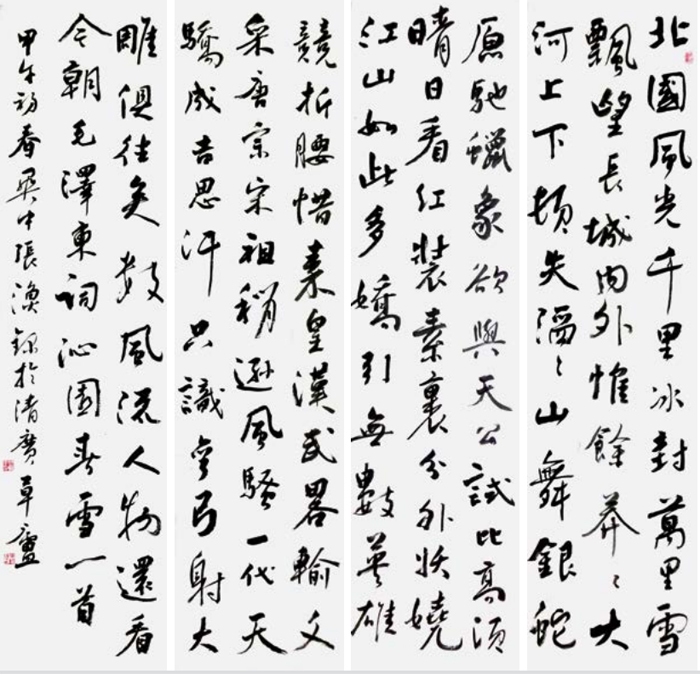 北國風光千里冰封萬里雪
飄望長城內外惟餘莽〻大
河上下頓失滔〻山舞銀蛇
原馳蠟象欲與天公試比高須
晴日看紅裝素裹分外妖嬈
江山如此多嬌引無數英雄
競折腰惜秦皇漢武畧輸文
采唐宗宋祖稍遜風騷一代天
驕成吉思汗只識彎弓射大
雕俱往矣數風流人物還看
今朝毛澤東詞沁園春雪一首
甲午初春吳中張渙錄於清廣草廬